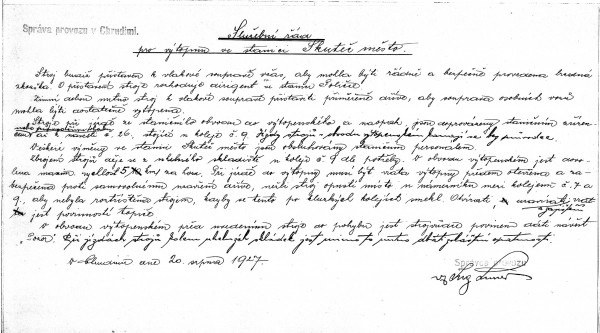 Správa provozu v Chrudimi.
Služební řád
pro výtopnu ve stanici Skuteč město.
Stroj budiž přistaven k vlakové soupravě včas, aby mohla býti řádně a bezpečně provedena brzdová
zkouška. O přistavení stroje rozhoduje dirigent ze stanice
Zimní dobou nutno stroj k vlakové soupravě přistaviti přiměřeně dříve, aby souprava osobních vozů
mohla býti dostatečně vytopena.
Stroje při jízdě ze staničního obvodu do výtopenského a naopak jsou doprovázeny staničním
č. 26, stojící u koleje č. 9.
Veškeré výměny ve stanici Skuteč město jsou obsluhovány staničním personálem.
Zbrojení strojů děje se z uhelného skladiště u koleje č. 9 dle potřeby. V obvodu výtopenském jest
maxim. rychlost 5 km za hod. Při jízdě do výtopny musí býti vrata výtopny předem otevřena a za-
bezpečena proti samovolnému zavření dříve, nežli stroj opustí místo u námezníku mezi kolejemi č. 7 a
9, aby nebyla roztříštěna strojem, kdyby se tento po kluzkých kolejích smekl. Otvírati, a vrat
jest povinností topiče
V obvodu výtopenském před uvedením stroje do pohybu jest strojvůdce povinen dáti návěst
"Pozor". Při jízdách strojů kolem uhelných skládek jest nutno dbáti zvláštní opatrnosti.
V Chrudimi dne 20. srpna 1927.
Správa provozu